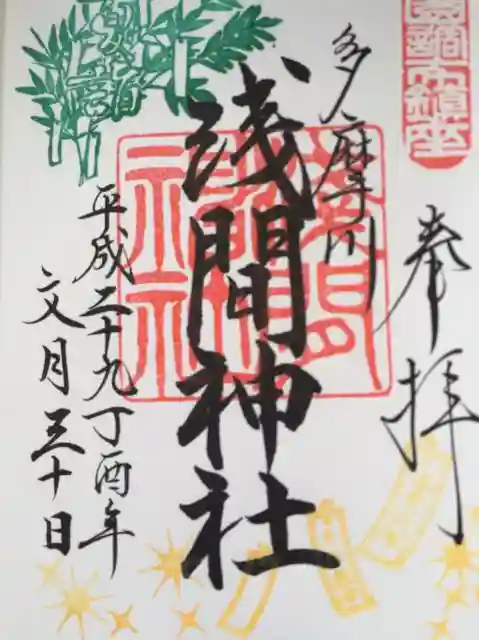 奉拝
多摩川
浅間神社
平成二十九丁酉年
文月三十日